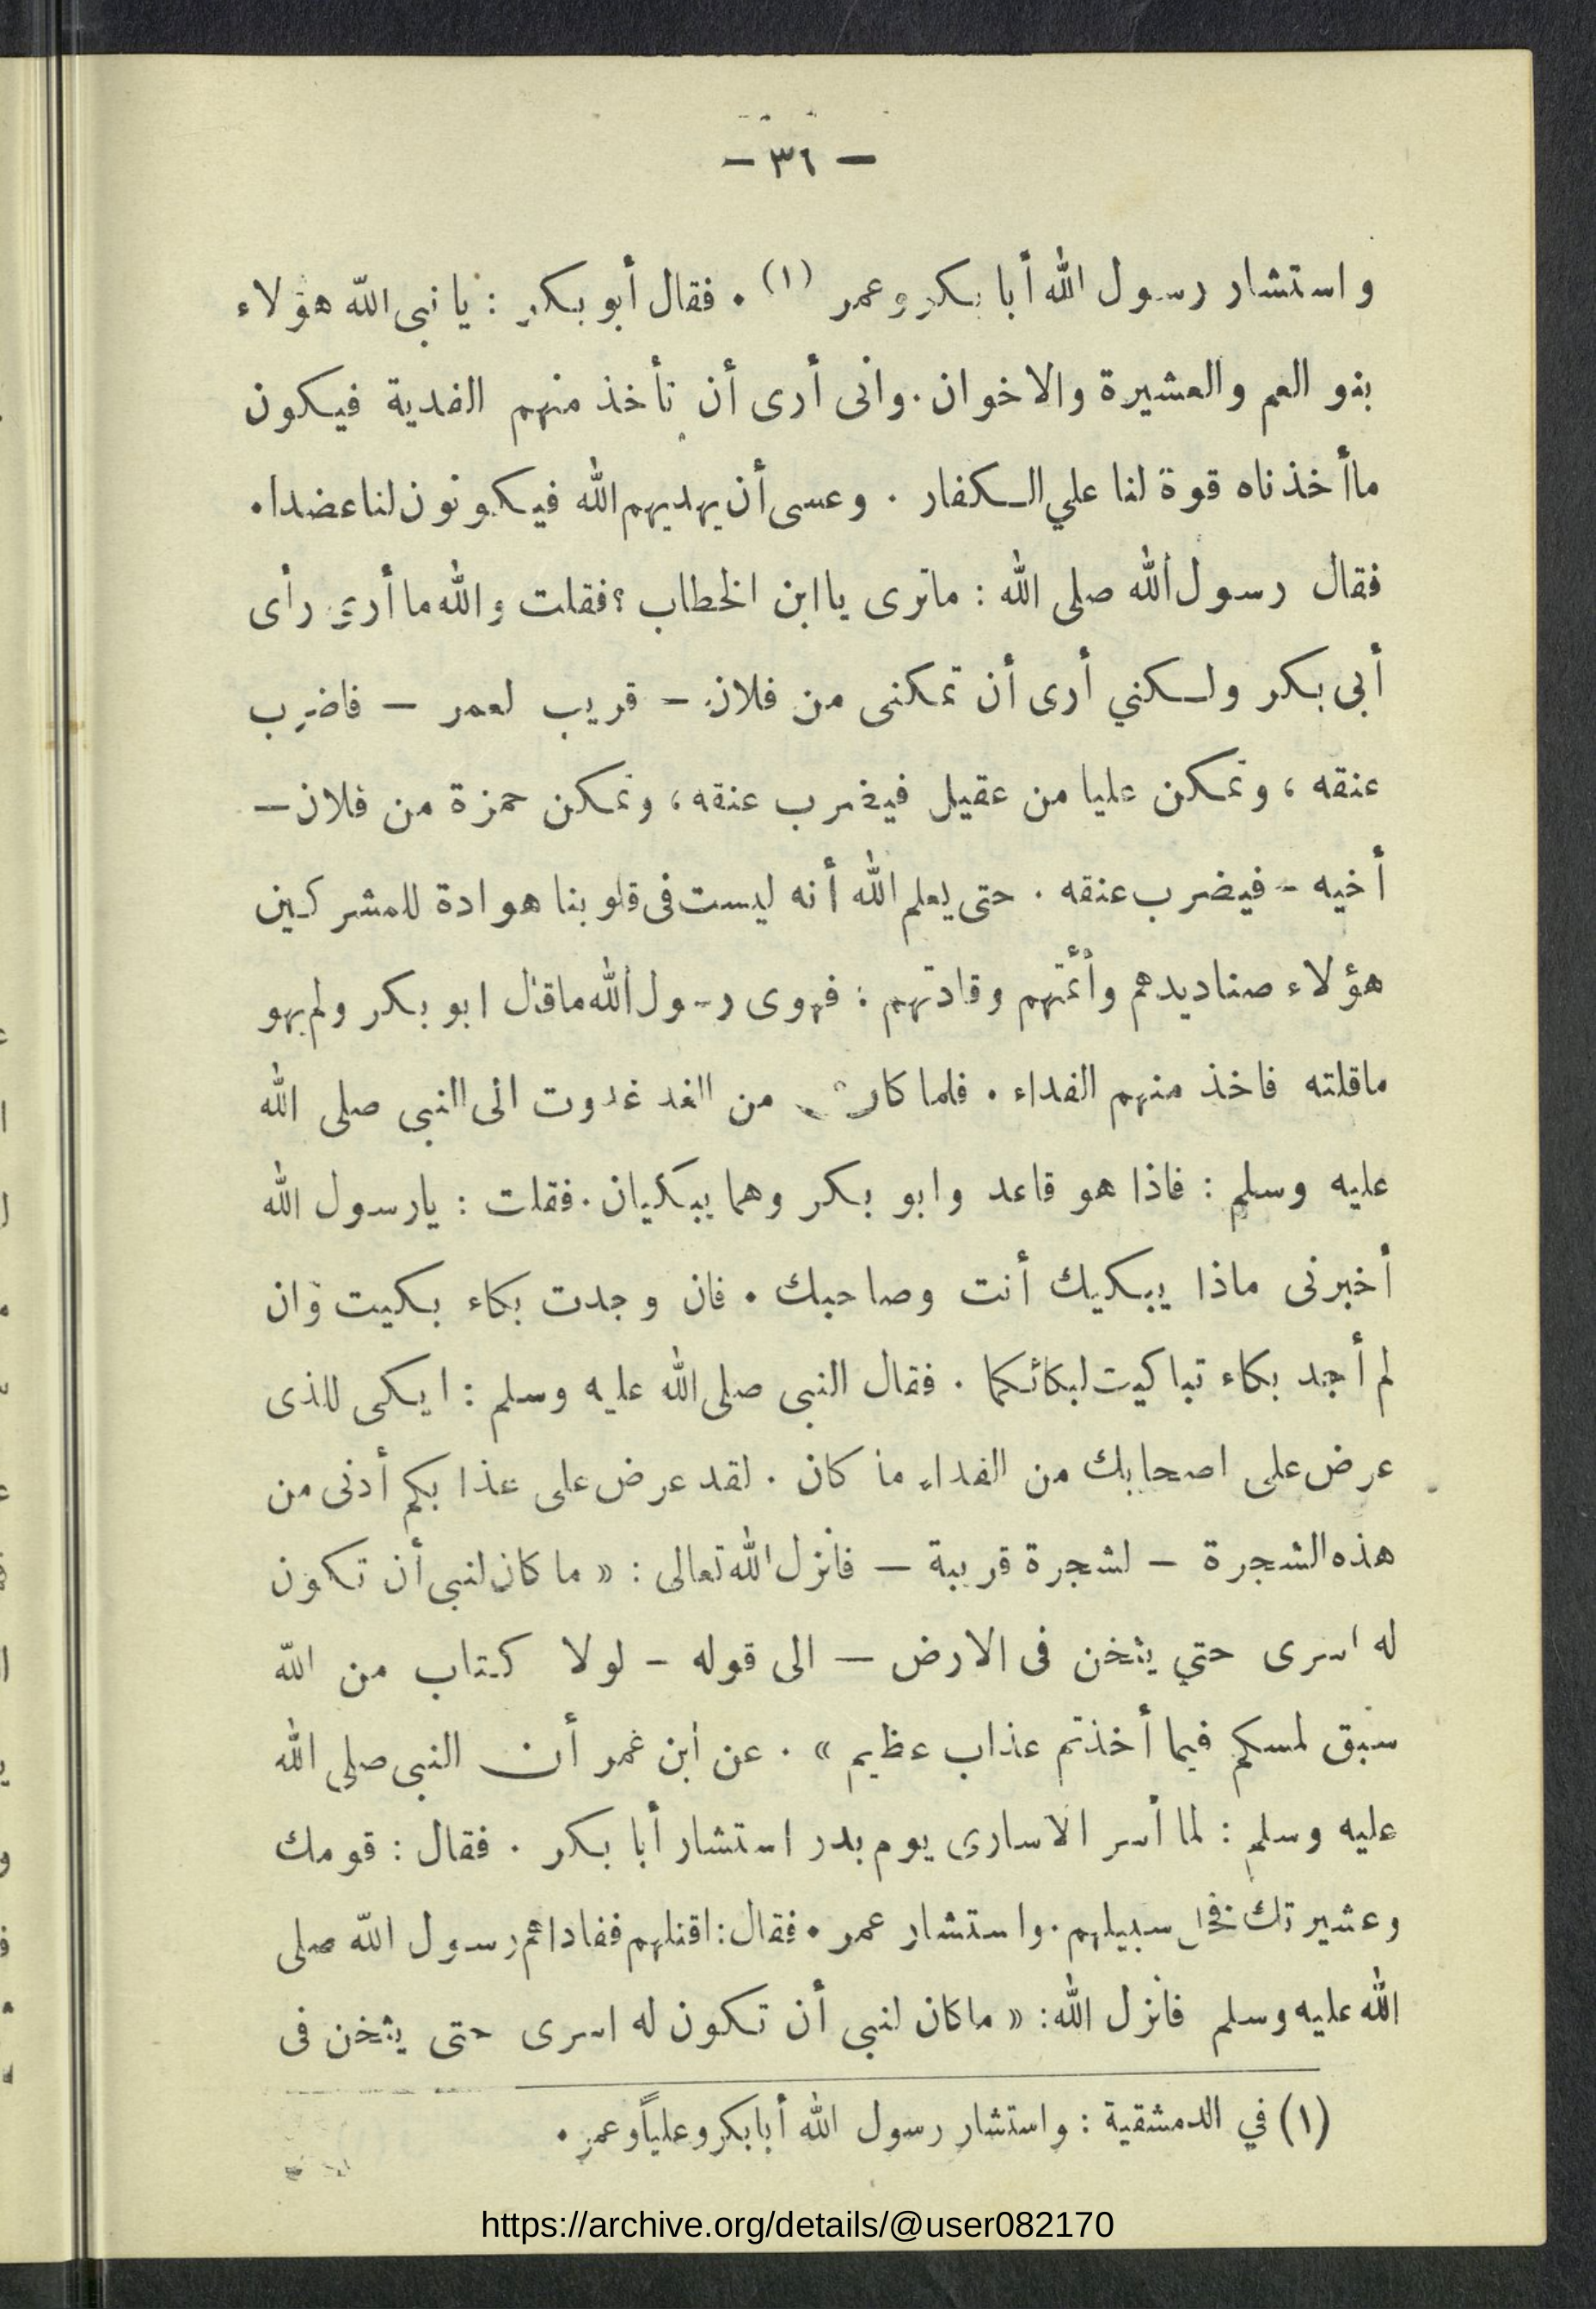 — ٣٦ —
واستشار رسول الله أبا بكر وعمر (١) . فقال أبو بكر : يا نبى الله هؤلاء
بنو العم والعشيرة والاخوان . وانى أرى أن تأخذ منهم الفدية فيكون
ماأخذناه قوة لنا علي الكفار . وعسى أن يهديهم الله فيكونون لنا عضدا .
فقال رسول الله صلى الله : ماترى ياابن الخطاب ؟ فقلت والله ما أرى رأى
أبى بكر ولكني أرى أن تمكنى من فلان — قريب لعمر — فاضرب
عنقه ، وتمكن عليا من عقيل فيضرب عنقه ، وتمكن حمزة من فلان —
أخيه — فيضرب عنقه . حتى يعلم الله أنه ليست فى قلوبنا هوادة للمشركين
هؤلاء صناديدهم وأئمتهم وقادتهم : فهوى رسول الله ماقال ابو بكر ولم يهو
ماقلته فاخذ منهم الفداء . فلما كان من الغد غدوت الى النبى صلى الله
عليه وسلم : فاذا هو قاعد وابو بكر وهما يبكيان . فقلت : يارسول الله
أخبرنى ماذا يبكيك أنت وصاحبك . فان وجدت بكاء بكيت وان
لم أجد بكاء تباكيت لبكائكما . فقال النبى صلى الله عليه وسلم : ابكى للذى
عرض على اصحابك من الفداء ما كان . لقد عرض على عذابكم أدنى من
هذه الشجرة — لشجرة قريبة — فانزل الله تعالى : « ما كان لنبى أن تكون
له اسرى حتي يثخن فى الارض — الى قوله — لولا كتاب من الله
سبق لمسكم فيما أخذتم عذاب عظيم » . عن ابن عمر أن النبى صلى الله
عليه وسلم : لما أسر الاسارى يوم بدر استشار أبا بكر . فقال : قومك
وعشيرتك فخل سبيلهم . واستشار عمر . فقال : اقتلهم ففاداهم رسول الله صلى
الله عليه وسلم فانزل الله : « ماكان لنبى أن تكون له اسرى حتى يثخن فى
(١) في الدمشقية : واستشار رسول الله أبابكر وعلياً وعمر .
https://archive.org/details/@user082170